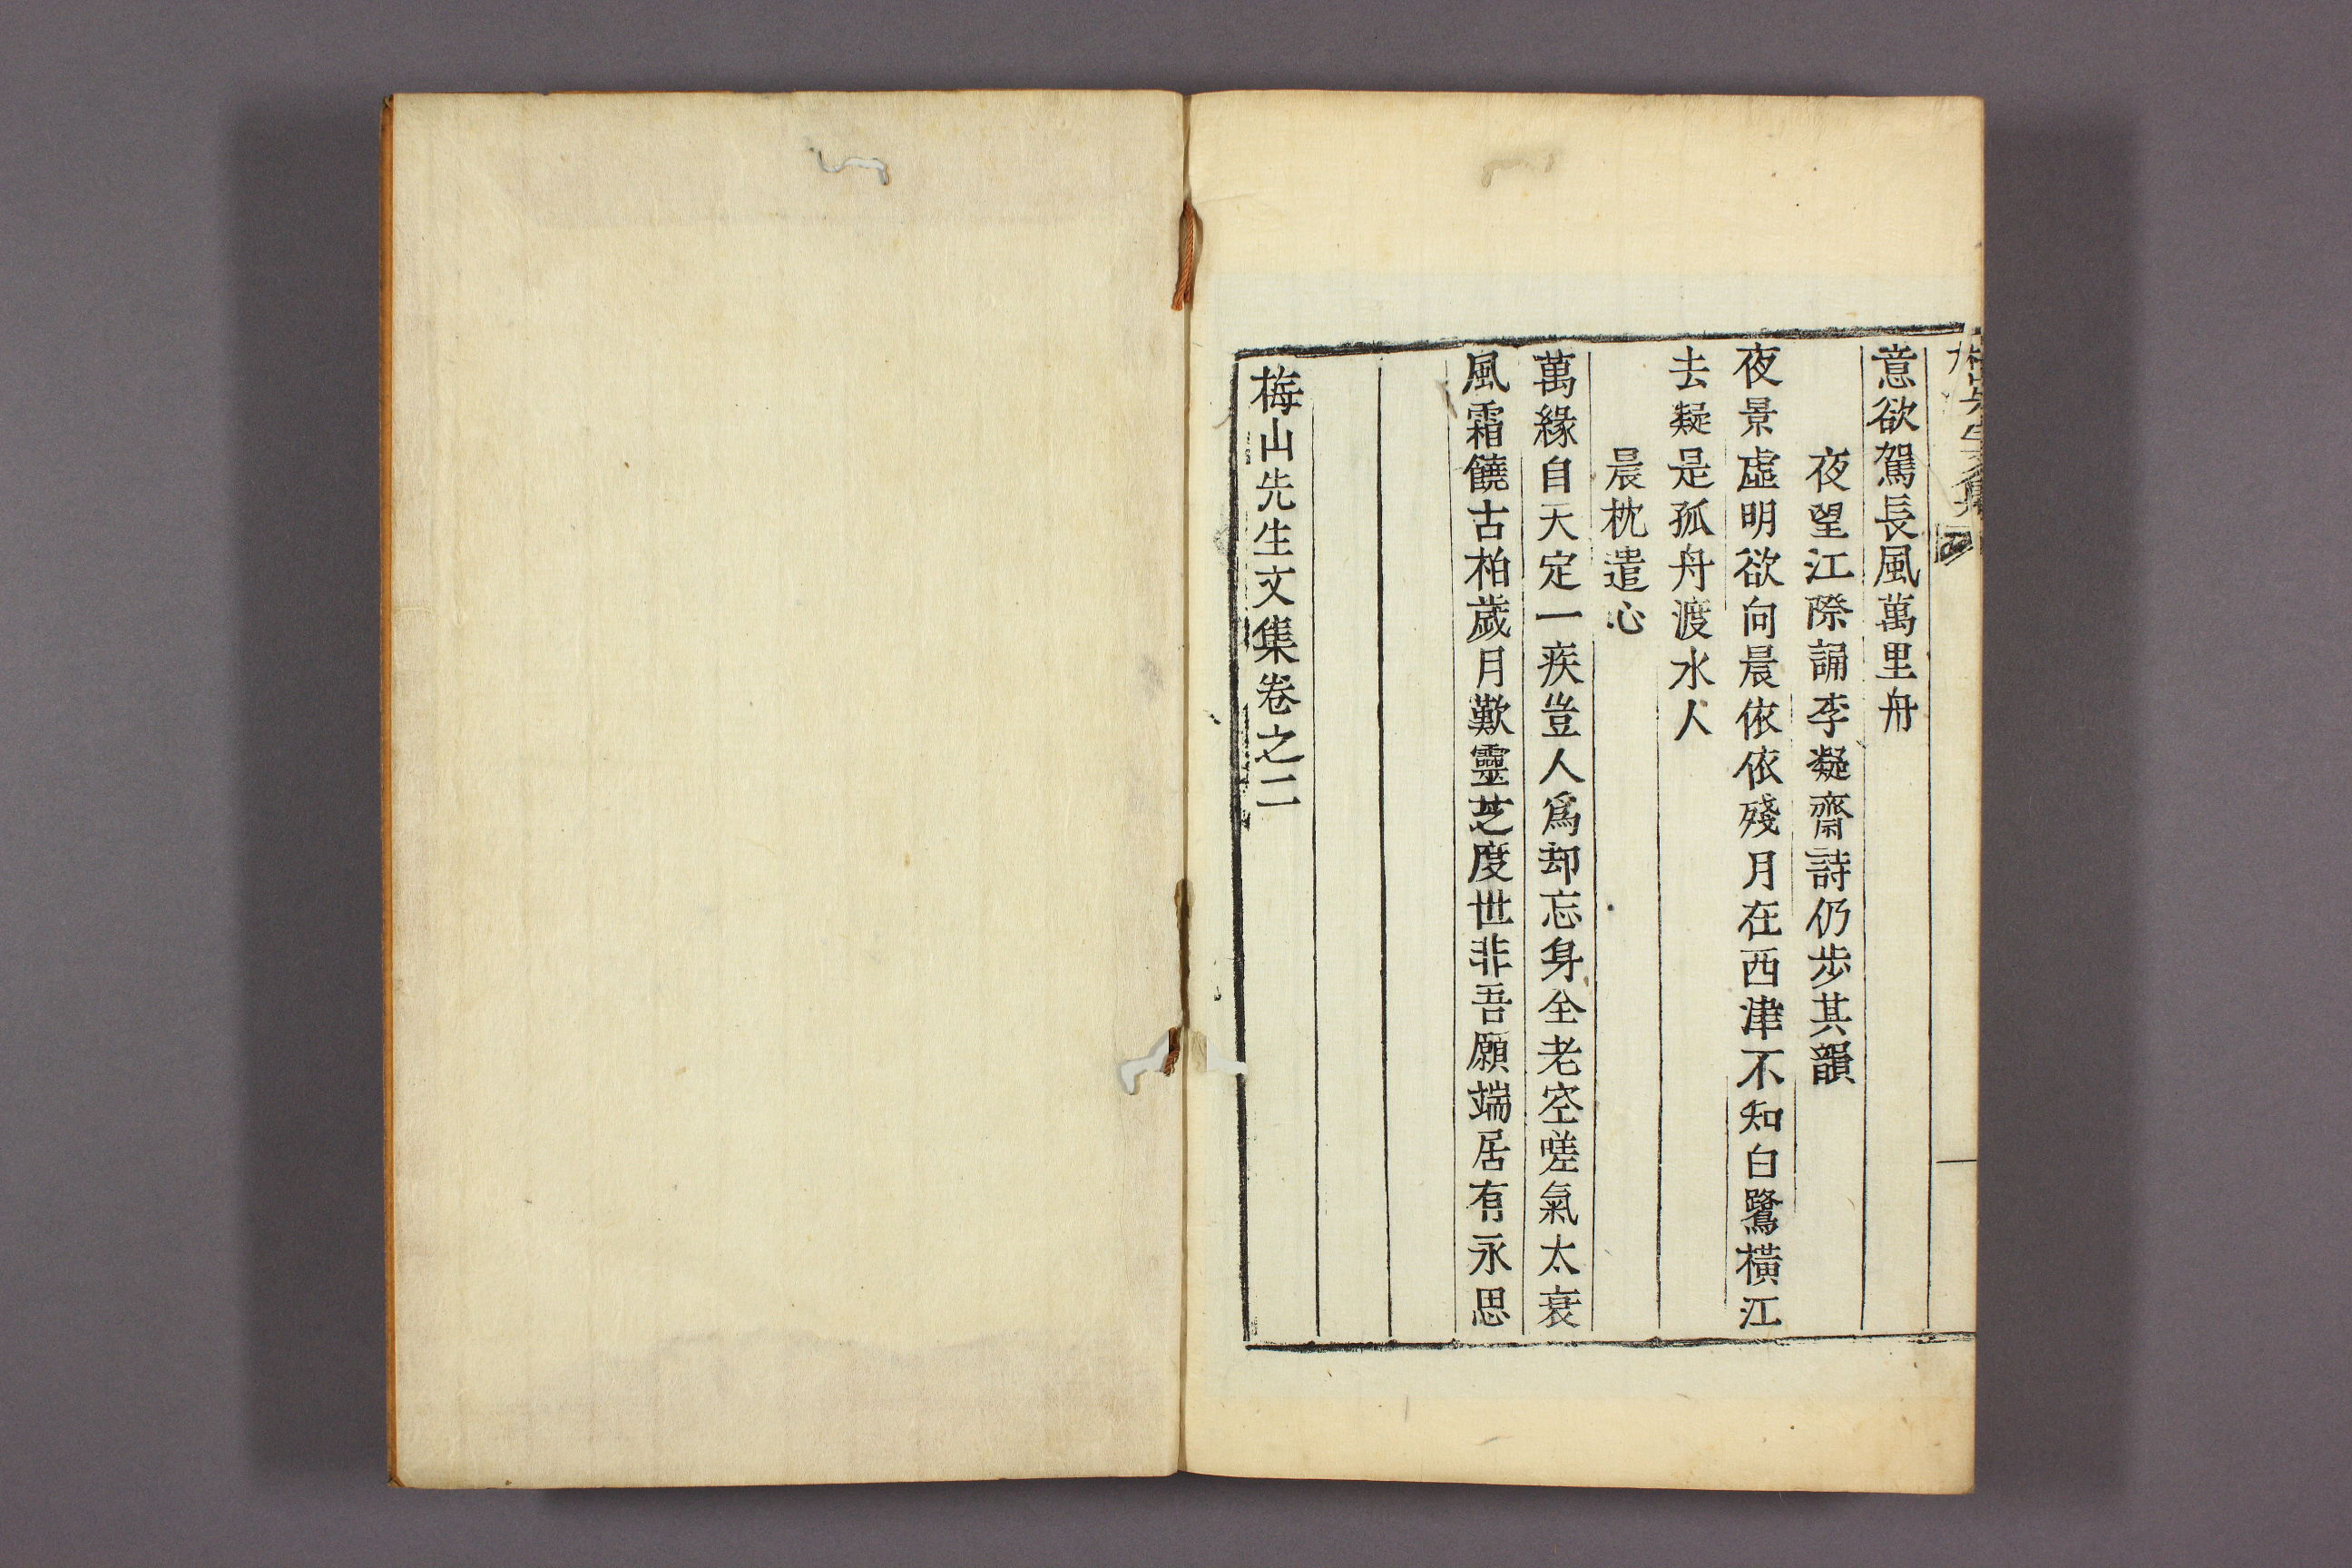 意欲駕長風萬里舟
夜望江際誦李凝齋詩仍步其韻
夜景虛明欲向晨依依殘月在西津不知白鷺橫江
去疑是孤舟渡水人
晨枕遣心
萬緣自天定一疾豈人爲却忘身全老空嗟氣太衰
風霜饒古柏歲月歎靈芝度世非吾願端居有永思
梅山先生文集卷之二